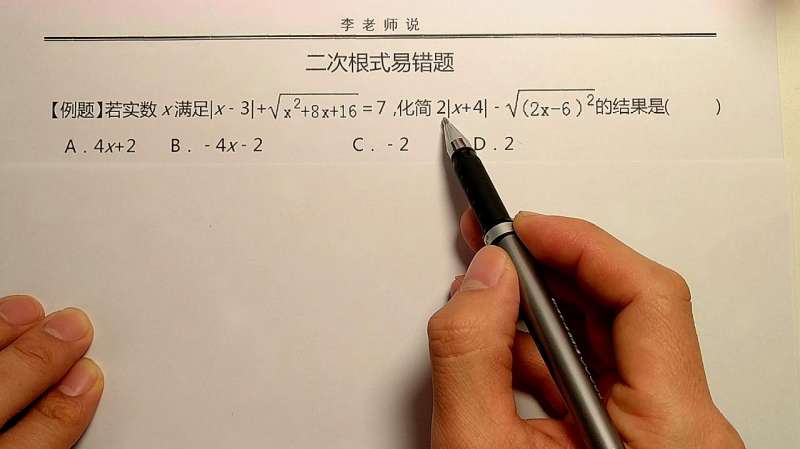 李老师说
二次根式易错题
【例题】若实数x满足|x-3|+√(x²+8x+16)=7,化简2|x+4|-√((2x-6)²)的结果是( )
A.4x+2 B.-4x-2 C.-2 D.2